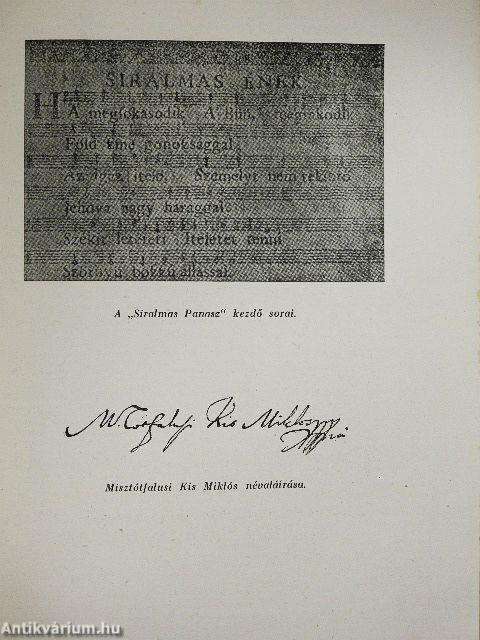 SIRALMAS ÉNEK
HA megsokasodik A Bün,
Föld színe gonosággal,
Az igaz ítelo, Szemelyt nem
Jehova nagy haraggal
Székit letéteti Iteletet tenni
Szörnyü bozzu állassal.
A „Siralmas Panasz" kezdő sorai.
M. Tótfalusi Kis Miklos
Misztótfalusi Kis Miklós névaláírása.
Antikvárium.hu